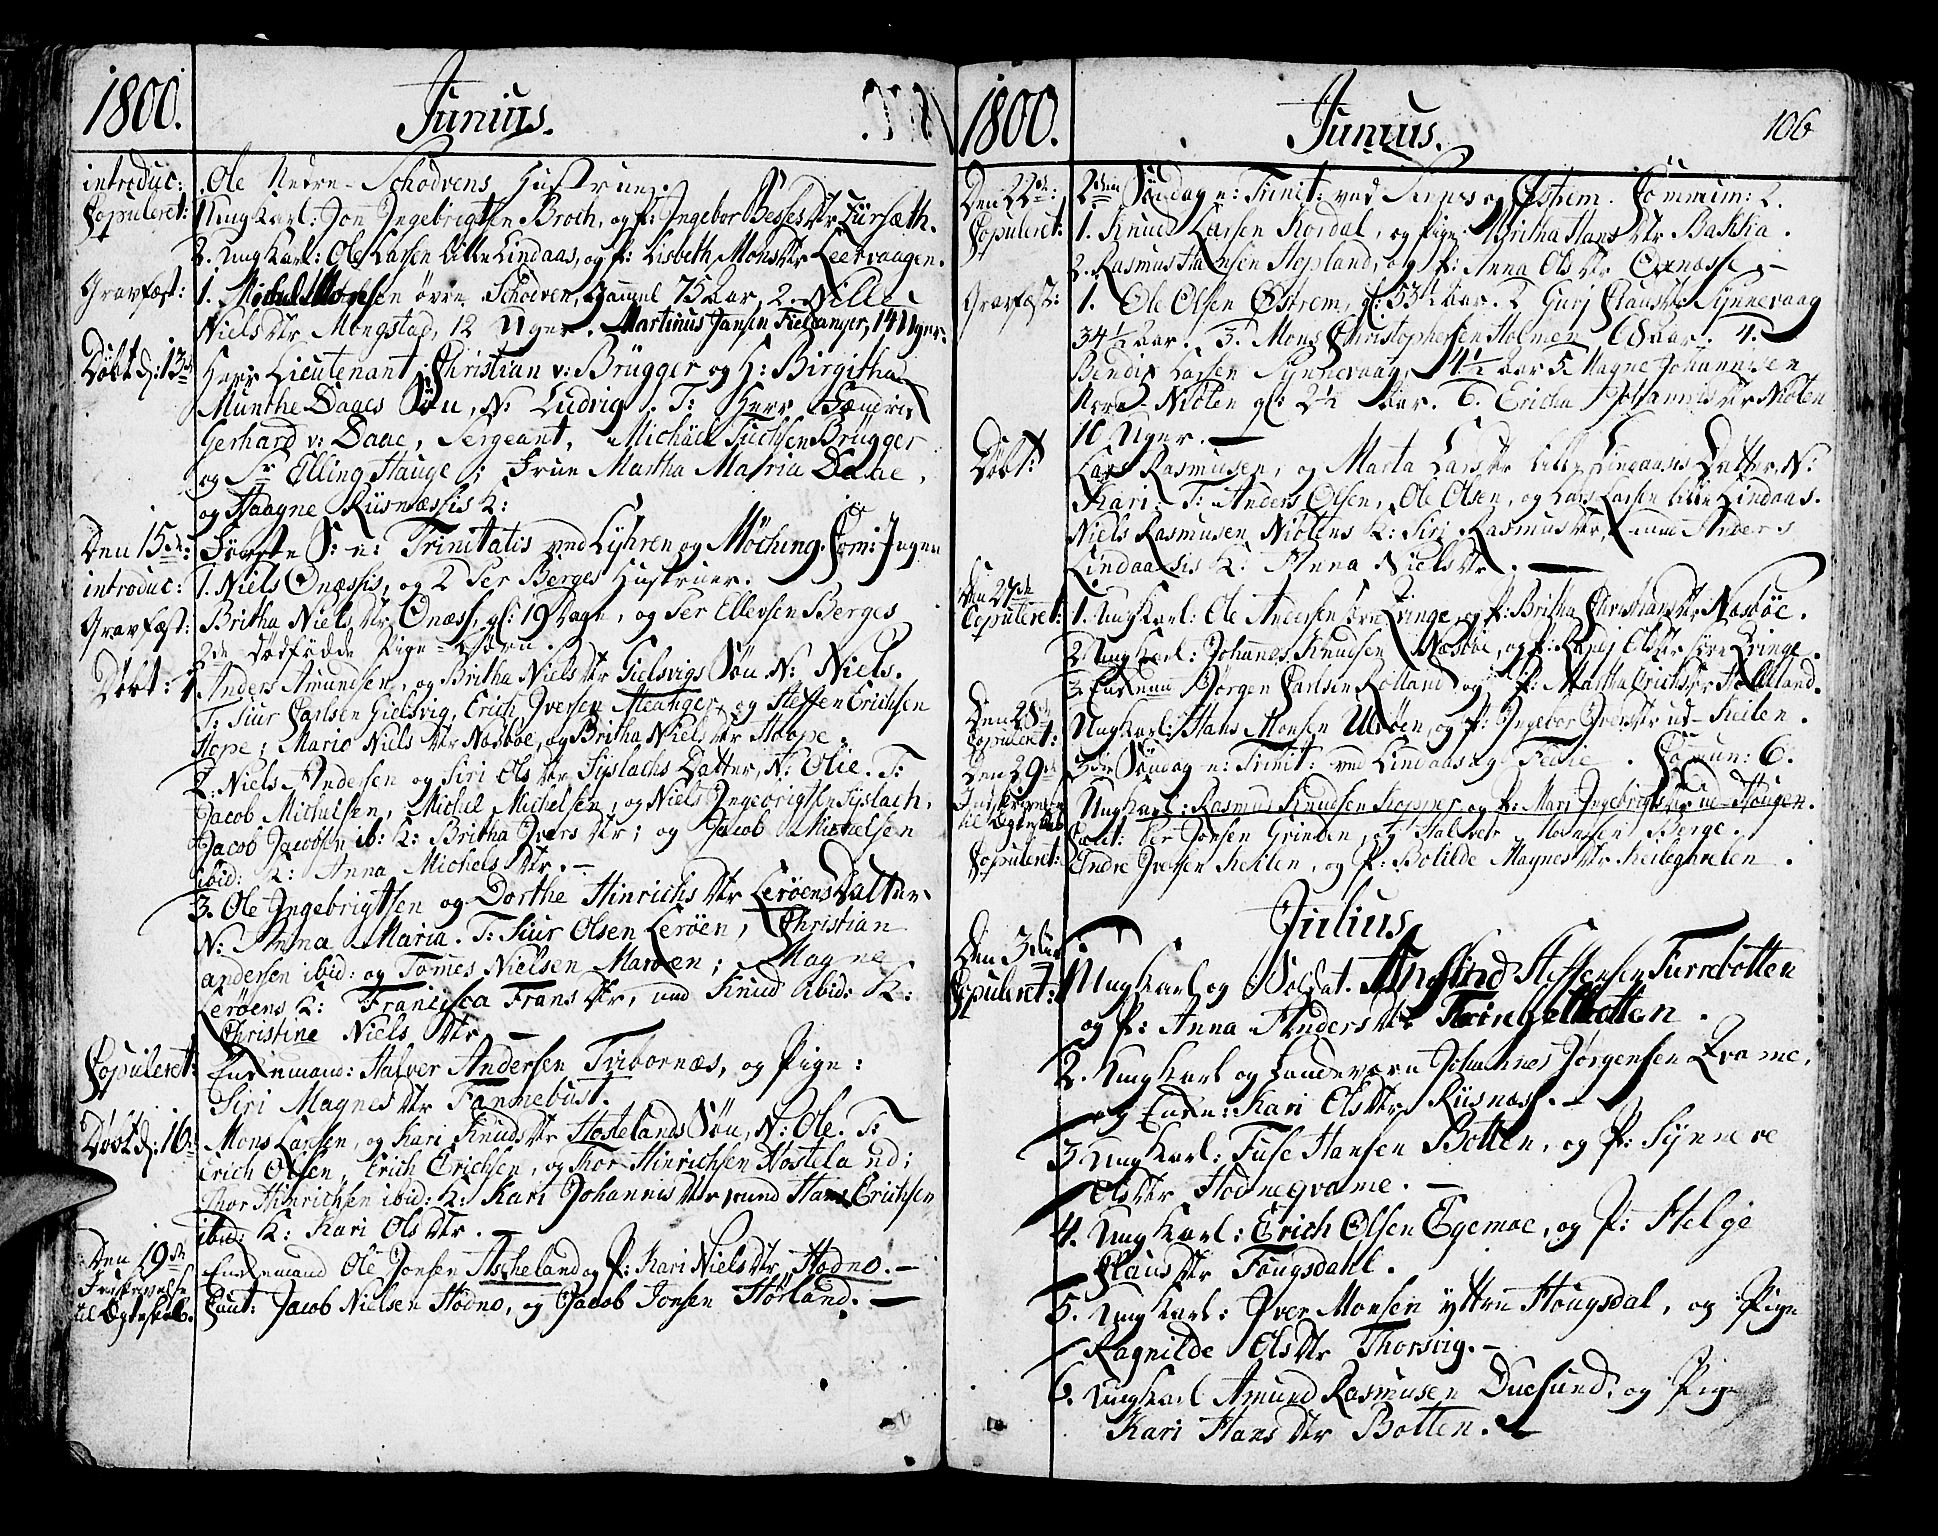 1800. Junius.
introduc: Ole Nedre-Schodvens Hustrue.
Copuleret: 1. Ungkarl: Jon Ingebrigtsen Broch, og P: Ingebor Besses Dtr Fürsæth.
2. Ungkarl: Ole Larsen lille Lindaas, og P: Lisbeth Mons Dtr Leervaagen.
Gravfæst: 1. Michel Monsen övre Schodven, Gammel 75 aar, 2. Nille
Niels Dtr Mongstad, 12 Uger. Martinus Jansen Fieldanger, 14 Uger.
Döbt d: 13de Herr Lieutenant Christian v: Brügger og H: Birgitha
Munthe Daaes Sön, N: Ludvig. T: Herr Hendric
Gerhard v: Daae, Sergeant, Michäel Tuchsen Brügger
og Sr Elling Hauge; Frue Martha Maria Daae,
og Haagne Riisnæssis K:
Den 15de: Förste S: e: Trinitatis ved Lyhren og Möching. Com: Ingen
introduc: 1. Niels Onæssis, og 2 Per Berges Hustruer.
Gravfæst: Britha Niels Dtr Onæss, gl: 19 Dage, og Per Ellevsen Berges
2de dödfödde Pige-Börn.
Döbt: 1 Anders Amundsen, og Britha Niels Dtr Gielsvigs Sön N: Niels.
T: Siur Carlsen Gielsvig, Erich Iversen Aleanger, og Steffen Erichsen
Hope; Mario Niels Dtr Næsböe, og Britha Niels Dtr Hoope.
2. Niels Andersen og Siri Ols Dtr Syslachs Datter, N: Olie. T:
Jacob Michelsen, Michel Michelsen, og Niels Ingebrigtsen Syslach,
Jacob Jacobsen ib: K: Britha Ivers Dtr; og Jacob Michelsen
ibid: K: Anna Michels Dtr. —
3. Ole Ingebrigtsen og Dorthe Hinrichs Dtr Leröens Datter
N: Anna Maria. T: Siur Olsen Leröen, Christian
Andersen ibid: og Tomes Nielsen Maröen; Magne
Leröens K: Francisca Frans Dtr, und Knud ibid: K:
Christine Niels Dtr —
Copuleret: Enkemand: Halver Andersen Tvibornæs, og Pige:
Siri Magnes Dtr Fammebust.
Döbt d: 16: Mons Larsen, og Kari Knuds Dtr Hostelands Sön, N: Ole. T:
Erich Olsen, Erich Erichsen, og Thor Hinrichsen Hosteland;
Thor Hinrichsen ibid: K: Kari Johannis Dtr und Hans Erichsen
ibid: K: Kari Ols Dtr. —
Den 19de Enkemand Ole Jonsen Ascheland og P: Kari Niels Dtr Hodno. —
til Ægteskab. Caut: Jacob Nielsen Hodno, og Jacob Jonsen Hörland. —
1800. Junius. 106
Den 22de: 2den Söndag e: Trinit: ved Sæms og Östrem. Commun: 2.
Copuleret: 1. Knud Larsen Kordal, og Pige: Britha Hans Dtr Bakka.
2. Rasmus Hansen Hopland, og P: Anna Ols Dtr Oxnæsse —
Gravfæst: 1. Ole Olsen Östrem, gl: 53½ aar. 2 Guri Claus Dtr Synnevaag
34½ aar. 3. Mons Christophersen Holmen 68 aar. 4.
Bendix Larsen Synnevaag, 4½ aar 5 Magne Johannisen
Nore Nioten gl: 2½ Aar. 6. Ericha Johannis Dtr Nioten
10 Uger. —
Döbt: Lars Rasmusen, og Marta Lars Dtr lille Lindaasis Datter N:
Kari. T: Anders Olsen, Ole Olsen, og Lars Larsen lille Lindaas.
Niels Rasmusen Niotens K: Siri Rasmus Dtr, Anders
Lindaasis K: Anna Niels Dtr. —
Den 27de
Copuleret: 1. Ungkarl: Ole Andersen övre Qvinge, og P: Britha Christians Dtr Næsböe.
2 Ungkarl: Johannes Knudsen Næsböe, og P: Randi Ols Dtr övre Qvinge.
3 Enkemand Börgen Carlsen Kolland og P: Martha Erichs Dtr Holland.
Den 28de
Copuleret: Ungkarl: Hans Monsen Ulvöen, og P: Ingebor Ivers Dtr ud-Keilen.
Den 29de 3die Söndag e: Trinit: ved Lindaas og Fedie. Commun: 6.
Indskrevne Ungkarl: Rasmus Knudsen Kopper og P: Mari Ingebrigts Dtr ud-Hougen.
til Ægteskab Caut: Per Jonsen Grinden, og Halvor Monssen Berge.
Copuleret: Endre Iversen Keilen, og P: Botilde Magnes Dtr Keilegrelen.
Julius
Den 3die
Copuleret: 1 Ungkarl og Soldat. Ansfind Steffensen Turrebotten
og P: Anna Anders Dtr Kringelbotten.
2. Ungkarl og Landeværn Johannes Jörgensen Qvame,
og Enke: Kari Ols Dtr Riisnæs. —
3 Ungkarl: Fuse Hansen Botten, og P: Synneve
Ols Dtr Hodneqvame. —
4. Ungkarl: Erich Olsen Egemoe, og P: Helge
Claus Dtr Fougsdahl.
5. Ungkarl: Iver Monsen yttre Hougsdal, og Pige
Ragnilde Ols Dtr Thorsvig. —
6. Ungkarl Amund Rasmusen Duesund, og Pige
Kari Hans Dtr Botten. —